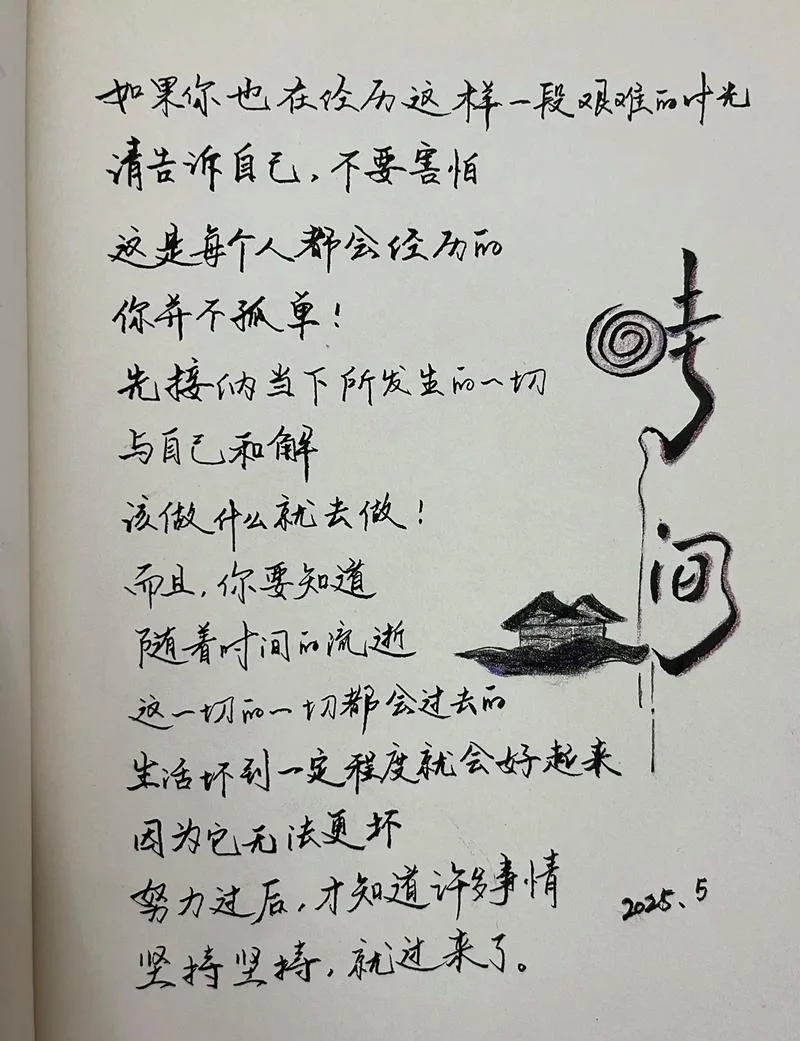 如果你也在经历这样一段艰难的时光
请告诉自己，不要害怕
这是每个人都会经历的
你并不孤单！
先接纳当下所发生的一切
与自己和解
该做什么就去做！
而且，你要知道
随着时间的流逝
这一切的一切都会过去的
生活坏到一定程度就会好起来
因为它无法更坏
努力过后，才知道许多事情
坚持坚持，就过来了。
时间
2025、5